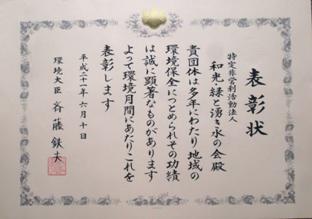 表彰状
特定非営利活動法人
和光・緑と湧き水の会殿
貴団体は多年にわたり地域の
環境保全につとめられその功績
は誠に顕著なものがあります
よって環境月間にあたりこれを
表彰します
平成二十一年六月十日
環境大臣 斉藤鉄夫